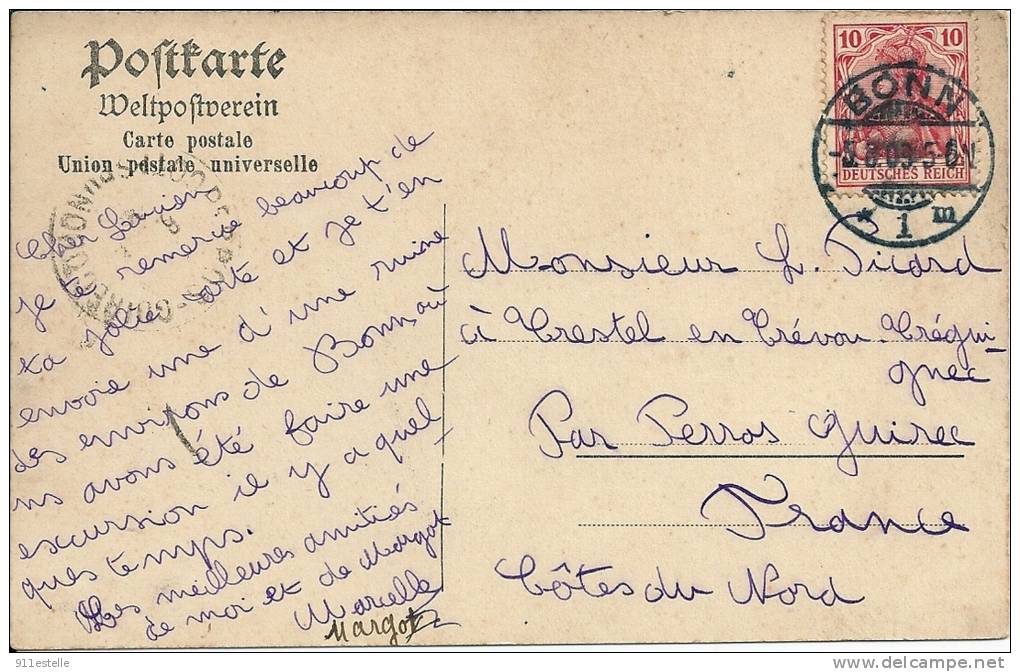 Postkarte
Weltpostverein
Carte postale
Union postale universelle
10 10
DEUTSCHES REICH
BONN
1 m
Cher Lucien
je te remercie beaucoup de
ta jolie carte et je t'en
envoie une d'une ruine
des environs de Bonn où
ns avons été faire une
excursion il y a quel
ques temps.
Les meilleures amitiés
de moi et de Margot
Marcelle
Margot
Monsieur L. Picard
à Trestel en Trévou-Trégui-
gnec
Par Perros Guirec
France
Côtes du Nord
911estelle
delcampe.net